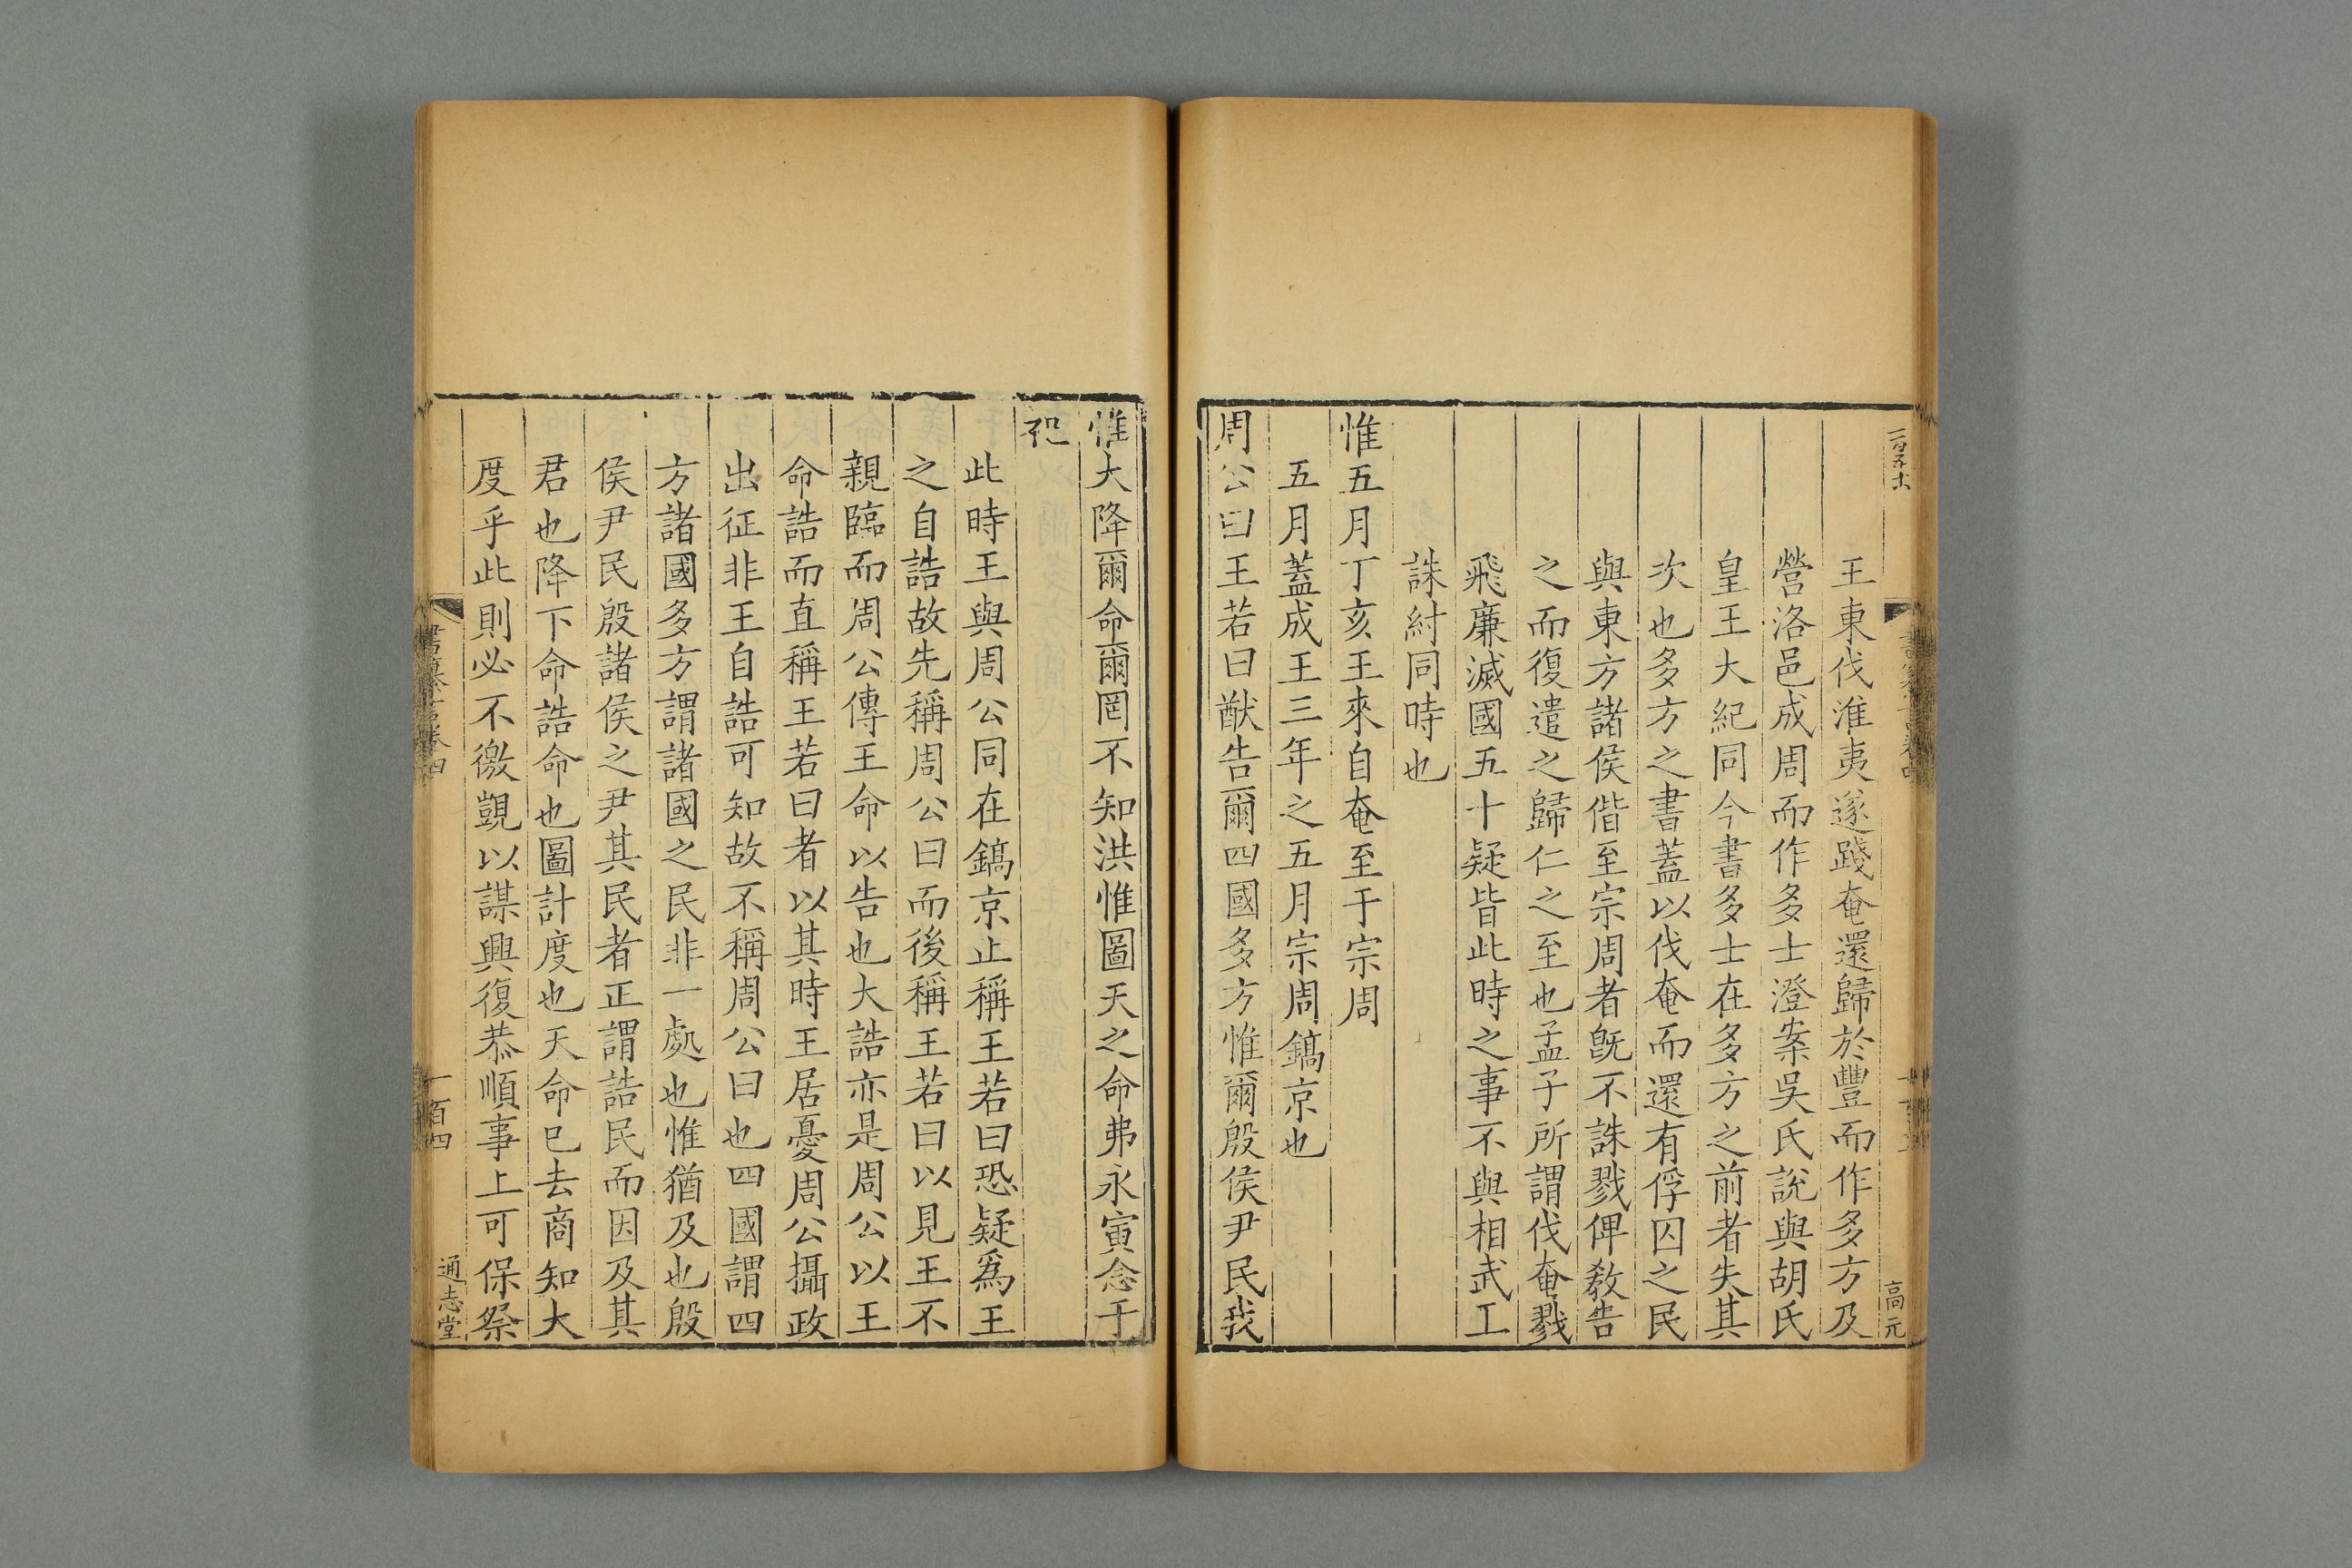 王東伐淮夷遂踐奄還歸於豐而作多方及
營洛邑成周而作多士澄案吳氏說與胡氏
皇王大紀同今書多士在多方之前者失其
次也多方之書蓋以伐奄而還有俘囚之民
與東方諸侯偕至宗周者旣不誅戮俾敎告
之而復遣之歸仁之至也孟子所謂伐奄戮
飛廉滅國五十疑皆此時之事不與相武王
誅紂同時也
惟五月丁亥王來自奄至于宗周
五月蓋成王三年之五月宗周鎬京也
周公曰王若曰猷告爾四國多方惟爾殷侯尹民我
惟大降爾命爾罔不知洪惟圖天之命弗永寅念于
祀
此時王與周公同在鎬京止稱王若曰恐疑爲王
之自誥故先稱周公曰而後稱王若曰以見王不
親臨而周公傳王命以告也大誥亦是周公以王
命誥而直稱王若曰者以其時王居憂周公攝政
出征非王自誥可知故不稱周公曰也四國謂四
方諸國多方謂諸國之民非一處也惟猶及也殷
侯尹民殷諸侯之尹其民者正謂誥民而因及其
君也降下命誥命也圖計度也天命已去商知大
度乎此則必不徼覬以謀興復恭順事上可保祭
高元
書纂言卷四
一百四
通志堂